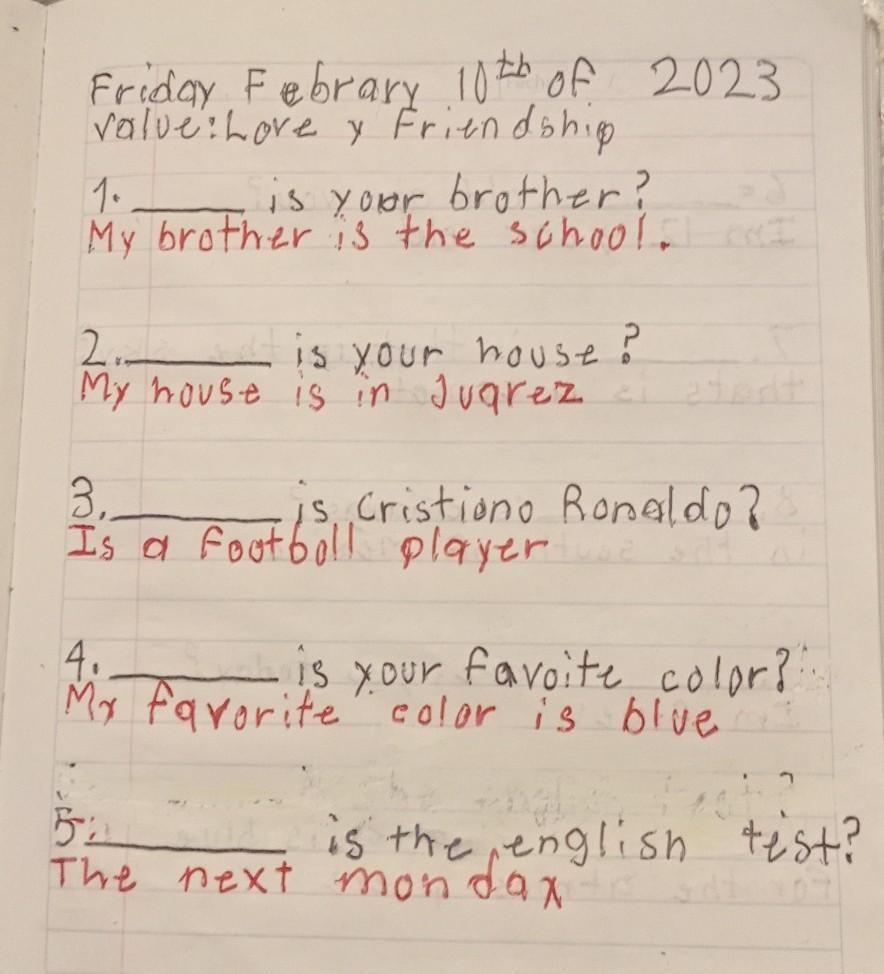 Friday Febrary 10th of 2023
value: Love y Friendship
1. ______ is your brother?
My brother is the school.
2. ________ is your house?
My house is in Juarez
3. _________ is Cristiano Ronaldo?
Is a football player
4. _________ is your favoite color?
My favorite color is blue
5. __________ is the english test?
The next monday